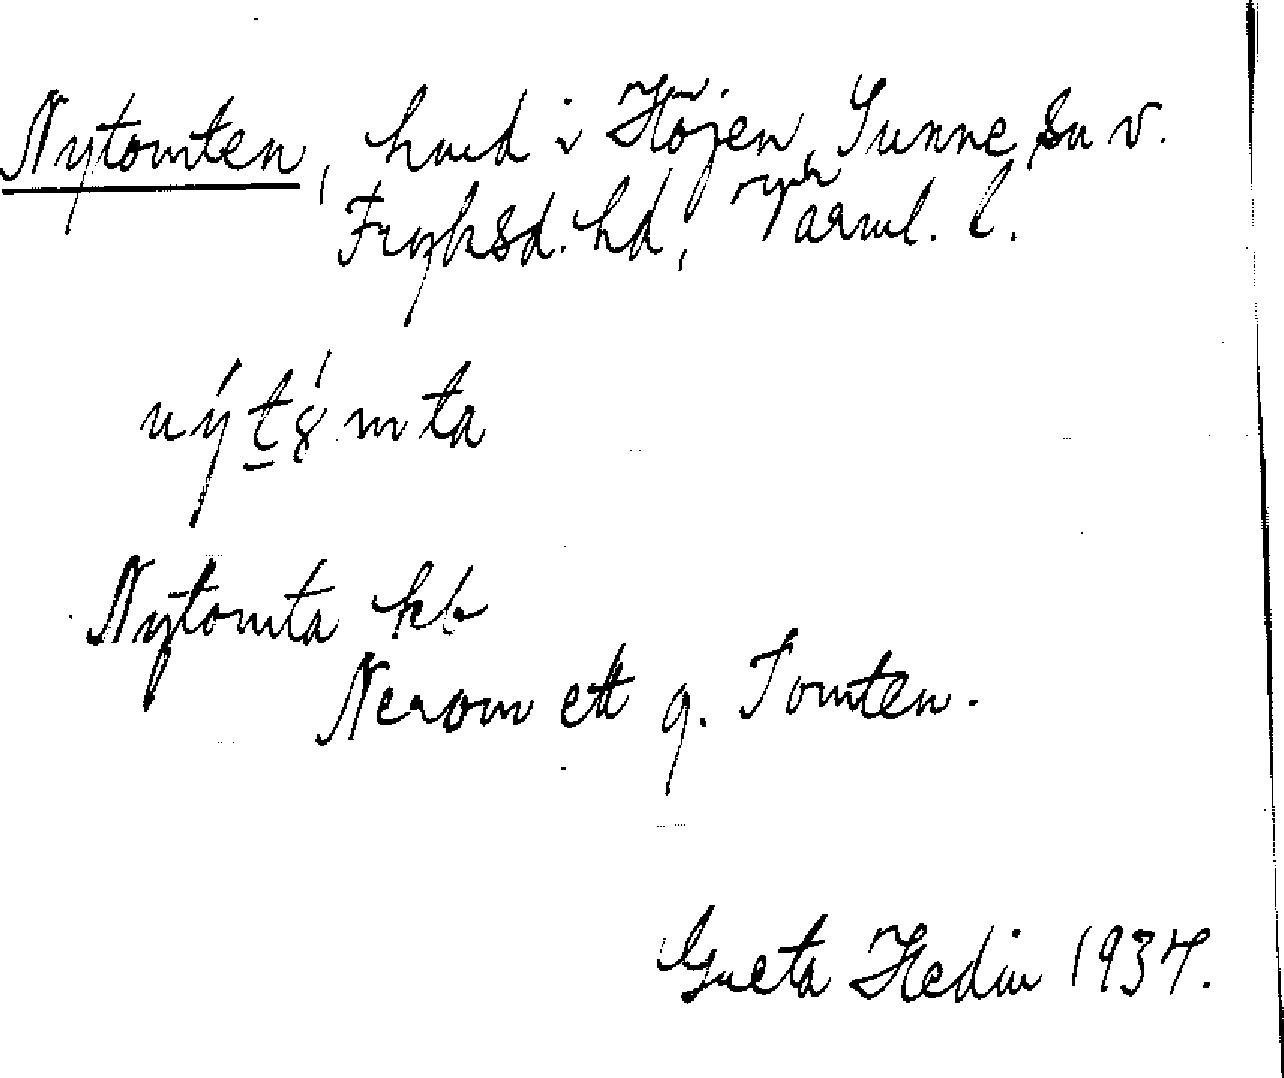 Nytomten, hmd i Höjen, Sunne sn v.
Fryksd. hd, Värml. l.
nýt̲ɣ́mta
Nytomta kb
Nerom ett g. Tomten.
Greta Hedin 1937.